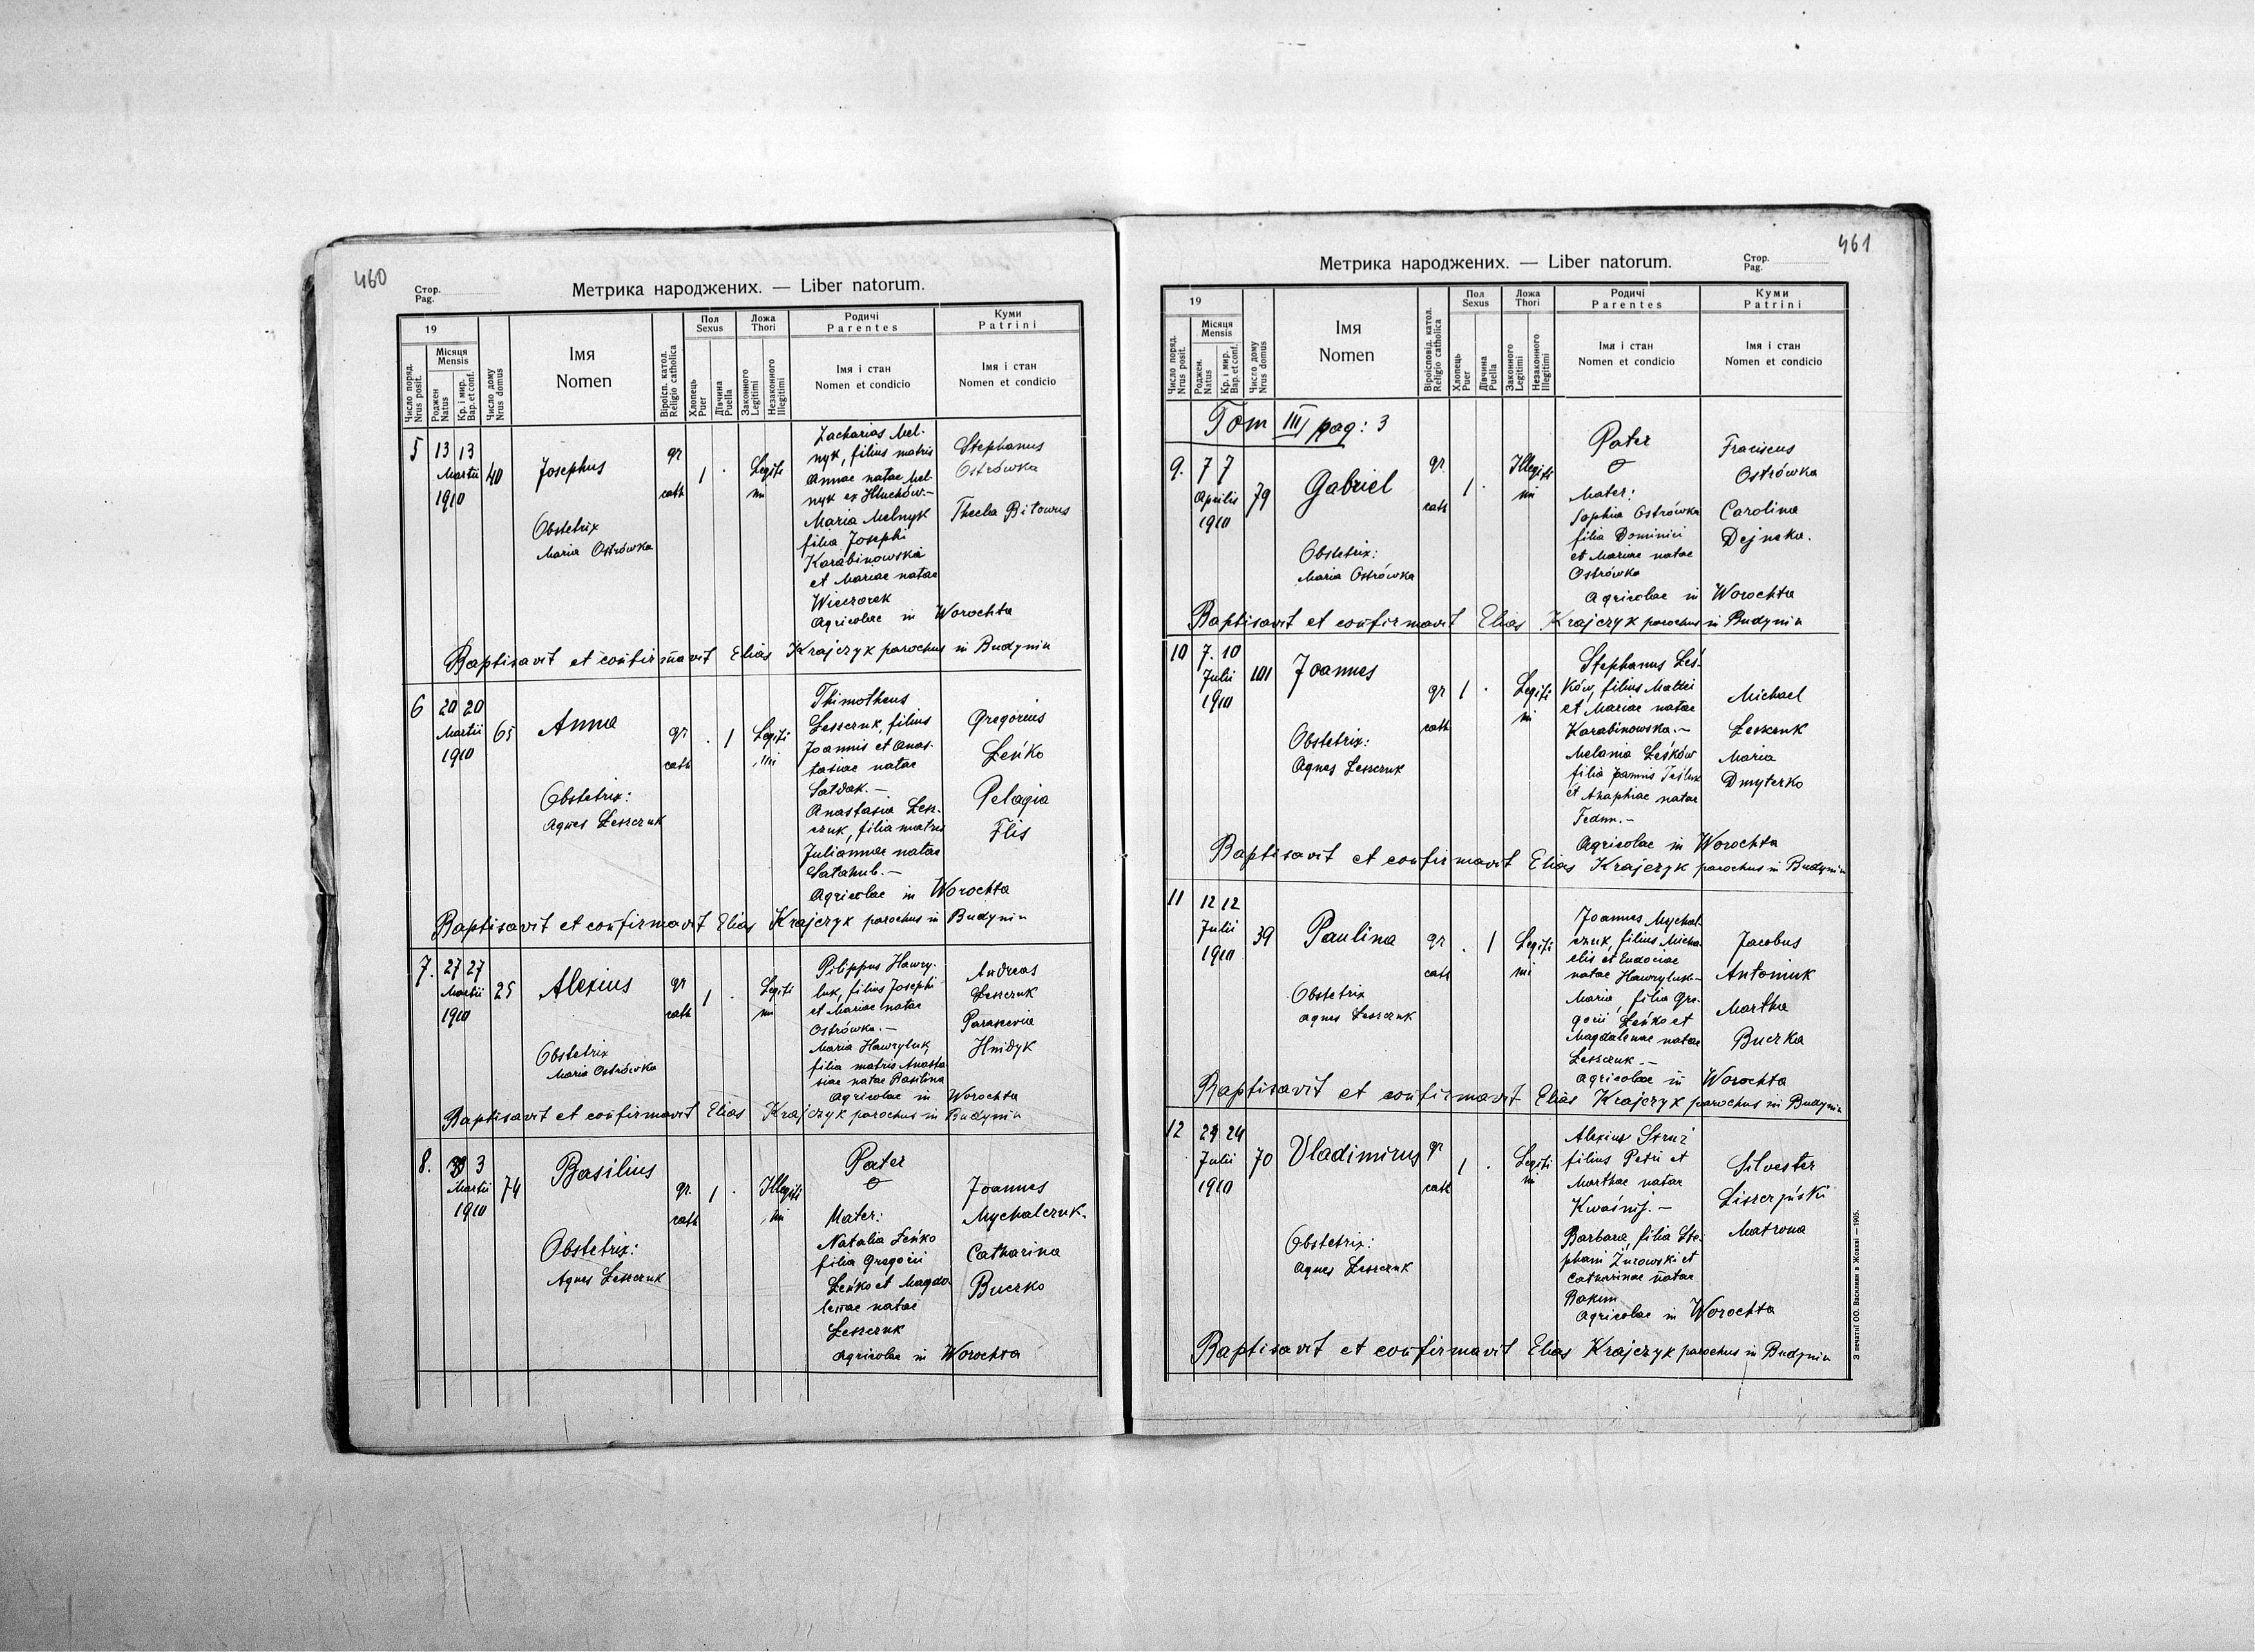 460
Стор.
Pag.
Метрика народжених. — Liber natorum.
19
Місяця
Mensis
Число поряд.
Nrus posit.
Роджен
Natus
Кр. і мир.
Bap. et conf.
Число дому
Nrus domus
Імя
Nomen
Віроісп. катол.
Religio catholica
Пол
Sexus
Хлопець
Puer
Дівчина
Puella
Ложа
Thori
Законного
Legitimi
Незаконного
Illegitimi
Родичі
Parentes
Імя і стан
Nomen et condicio
Куми
Patrini
Імя і стан
Nomen et condicio
5 13 13
Martii
1910
40
Josephus
Obstetrix
Maria Ostrówka
gr
cath
1 .
Legiti
mi
Zacharias Mel-
nyk, filius matris
Annae natae Mel-
nyk ex Hluchów.-
Maria Melnyk
filia Josephi
Karabinowska
et Mariae natae
Wieczorek
Agricolae in Worochta
Stephanus
Ostrówka
Thecla Bitowus
Baptisavit et confirmavit Elias Krajczyk parochus in Budynin
6 20 20
Martii
1910
65
Anna
Obstetrix:
Agnes Leszczuk
gr
cath
. 1
Legiti
mi
Thimotheus
Leszczuk, filius
Joannis et Anas-
tasiae natae
Satdak.-
Anastasia Lesz-
czuk, filia matris
Juliannae natae
Satahub.-
Agricolae in Worochta
Gregorius
Leńko
Pelagia
Flis
Baptisavit et confirmavit Elias Krajczyk parochus in Budynin
7. 27 27
Martii
1910
25
Alexius
Obstetrix
Maria Ostrówka
gr
cath
1 .
Legiti
mi
Pilippus Hawry-
luk, filius Josephi
et Mariae natae
Ostrówka.-
Maria Hawryluk,
filia matris Anasta
siae natae Basilina
Agricolae in Worochta
Andreas
Leszczuk
Parascevia
Hnidyk
Baptisavit et confirmavit Elias Krajczyk parochus in Budynin
8. 3
Martii
1910
74
Basilius
Obstetrix:
Agnes Leszczuk
gr.
cath
1 .
Illegiti
mi
Pater
Mater:
Natalia Leńko
filia Gregorii
Leńko et Magda-
lenae natae
Leszczuk
Agricolae in Worochta
Joannes
Mychalczuk.
Catharina
Buczko
461
Метрика народжених. — Liber natorum.
Стор.
Pag.
19
Місяця
Mensis
Число поряд.
Nrus posit.
Роджен.
Natus
Кр. і мир.
Bap. et conf.
Число дому
Nrus domus
Імя
Nomen
Віроісповід. катол.
Religio catholica
Пол
Sexus
Хлопець
Puer
Дівчина
Puella
Ложа
Thori
Законного
Legitimi
Незаконного
Illegitimi
Родичі
Parentes
Імя і стан
Nomen et condicio
Куми
Patrini
Імя і стан
Nomen et condicio
Tom III pag: 3
9. 7 7
Aprilis
1910
79
Gabriel
Obstetrix:
Maria Ostrówka
gr.
cath
1 .
Illegiti
mi
Pater
Mater:
Sophia Ostrówka
filia Dominici
et Mariae natae
Ostrówka
Agricolae in Worochta
Fraciscus
Ostrówka
Carolina
Dejneka.
Baptisavit et confirmavit Elias Krajczyk parochus in Budynin
10 7. 10
Julii
1910
101
Joannes
Obstetrix:
Agnes Leszczuk
gr
cath
1 .
Legiti
mi
Stephanus Leś-
ków, filius Mathei
et Mariae natae
Karabinowska.-
Melania Leśków
filia Joannis Teśluk
et Anaphiae natae
Fedun.-
Agricolae in Worochta
Michael
Leszczuk
Maria
Dmyterko
Baptisavit et confirmavit Elias Krajczyk parochus in Budynin
11 12 12
Julii
1910
39
Paulina
Obstetrix
Agnes Leszczuk
gr
cath
. 1
Legiti
mi
Joannes Mychal-
czuk, filius Micha-
elis et Eudociae
natae Hawryluk-
Maria, filia Gre-
gorii Leńko et
Magdalenae natae
Leszczuk.-
Agricolae in Worochta
Jacobus
Antoniuk
Martha
Buczko
Baptisavit et confirmavit Elias Krajczyk parochus in Budynin
12 24 24
Julii
1910
70
Vladimirus
Obstetrix:
Agnes Leszczuk
gr
cath
1 .
Legiti
mi
Alexius Struż
filius Petri et
Marthae natae
Kwaśnij.-
Barbara, filia Ste-
phani Żurowski et
Catharinae natae
Bakun
Agricolae in Worochta
Silvester
Liszczyński
Matrona
Baptisavit et confirmavit Elias Krajczyk parochus in Budynin
З печатні ОО. Василиян в Жовкві — 1905.